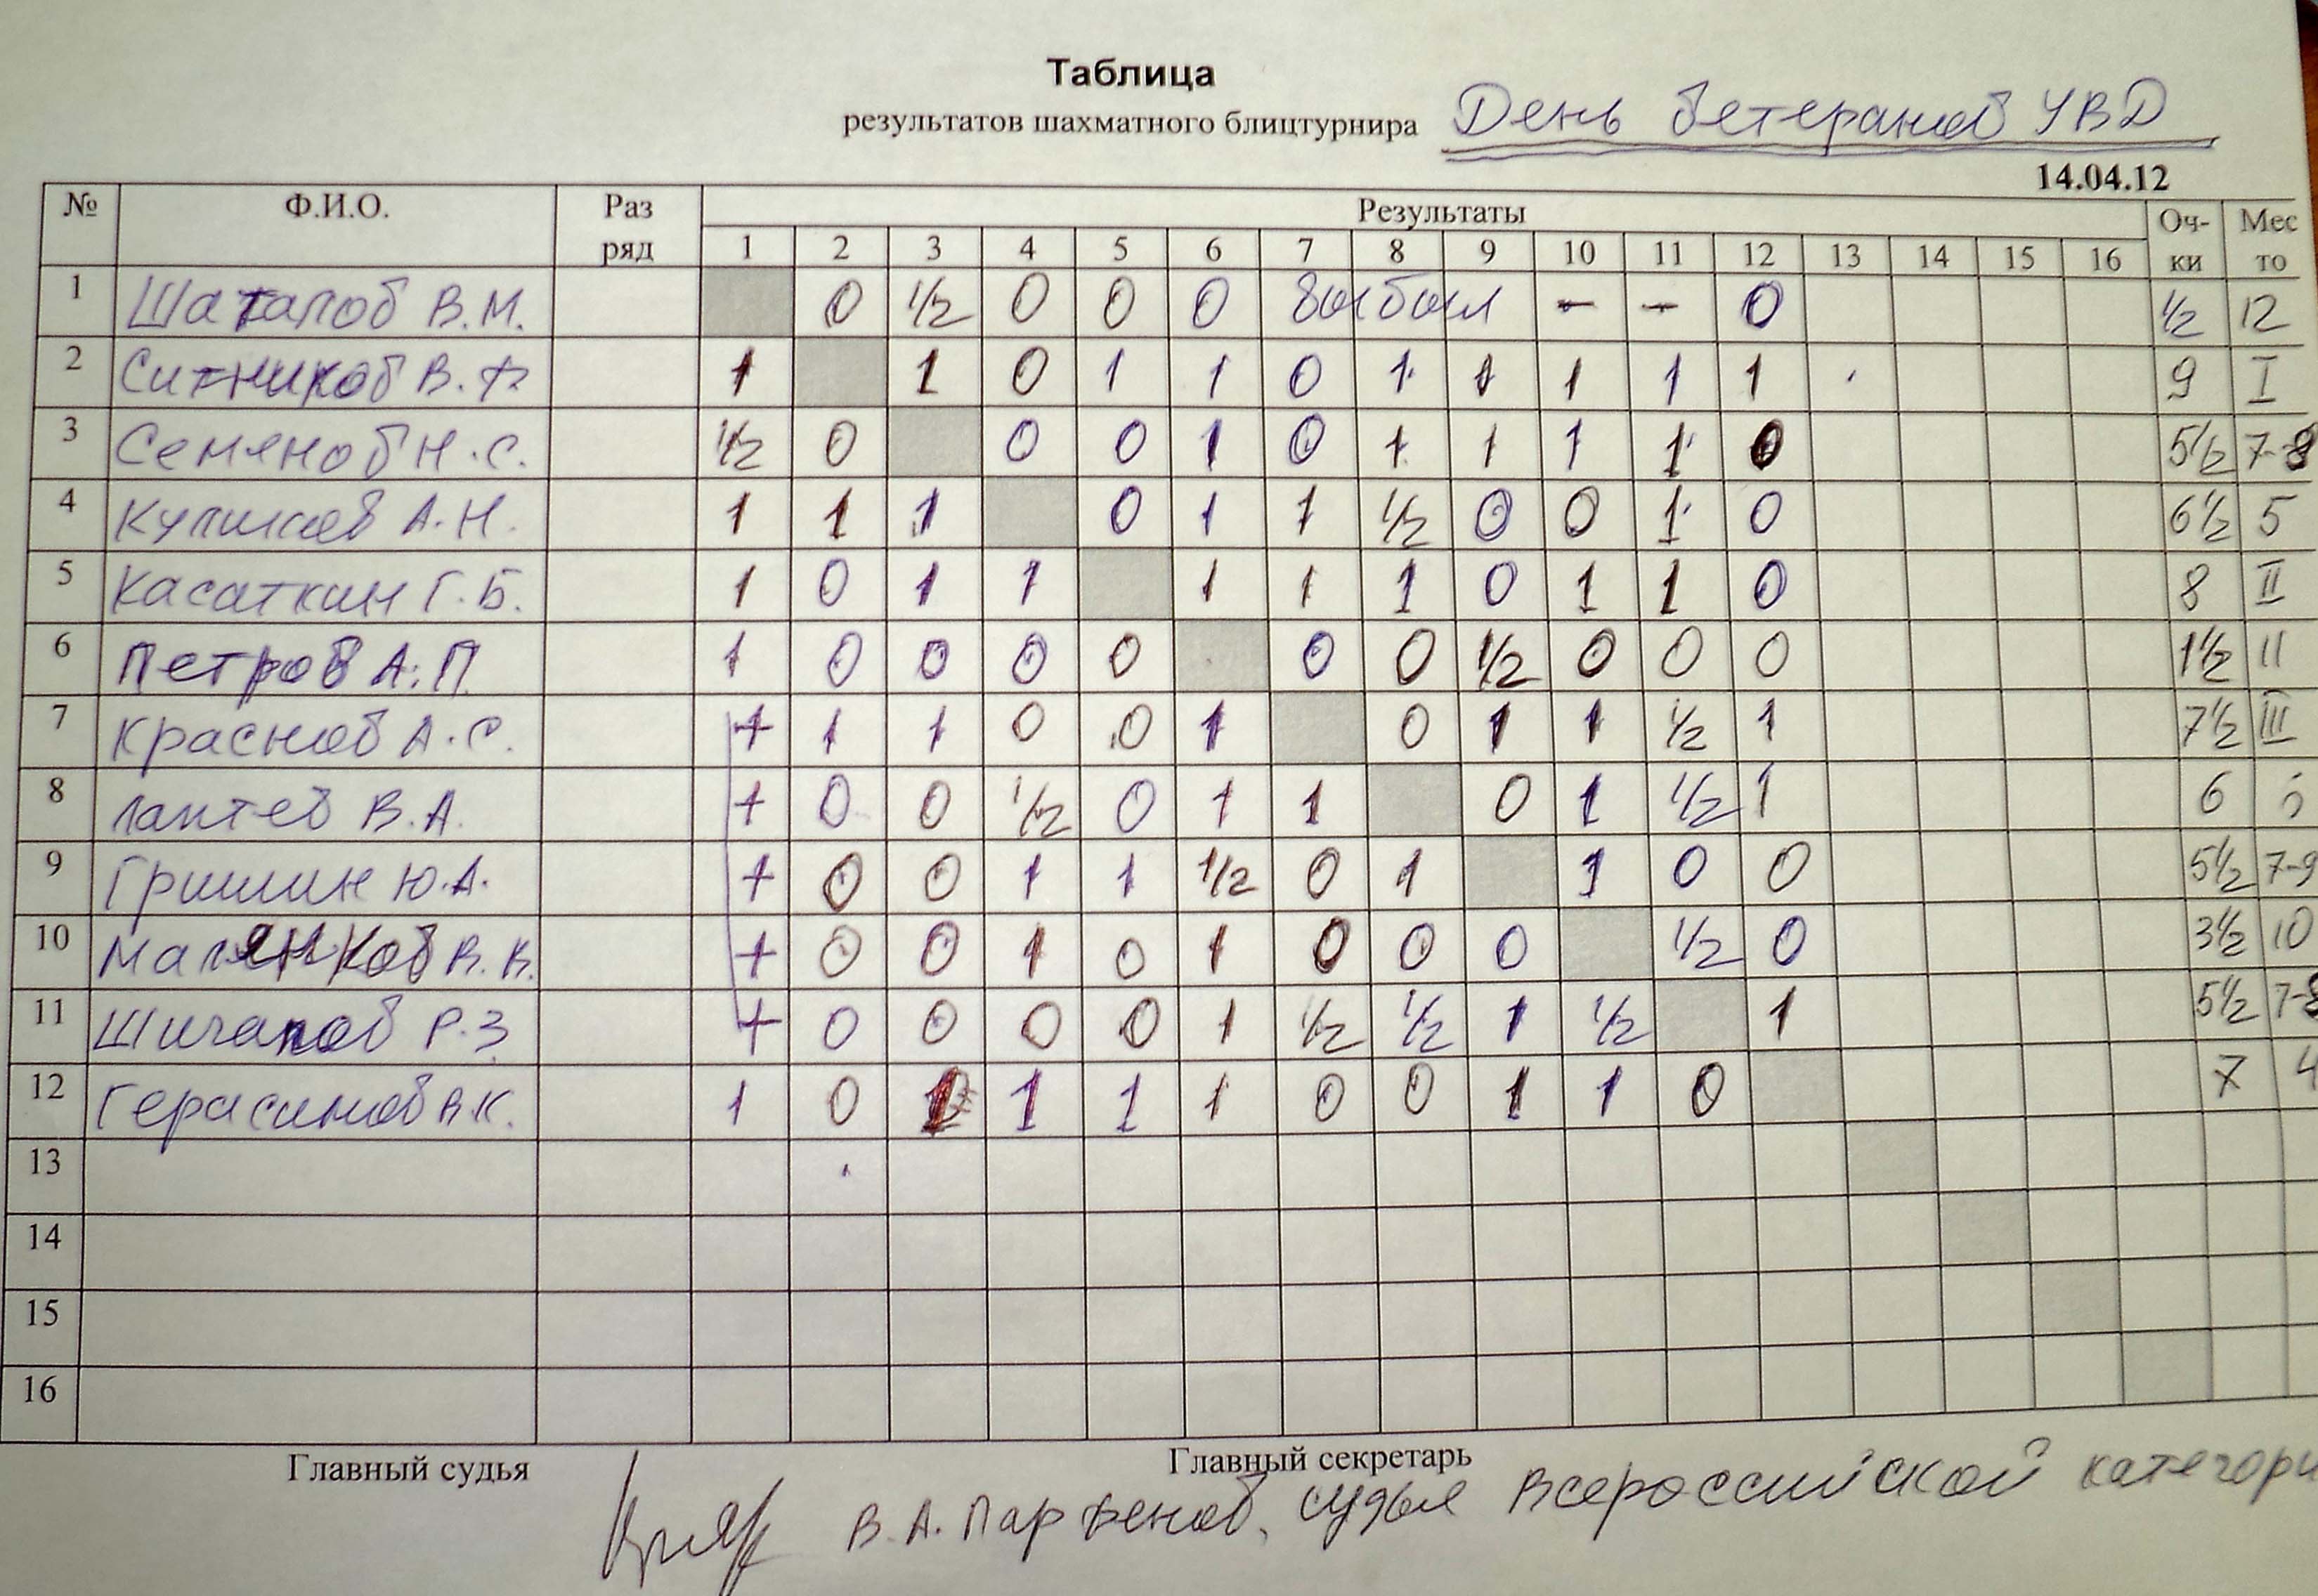 Таблица
результатов шахматного блицтурнира День ветеранов УВД
14.04.12
№ Ф.И.О. Раз ряд Результаты Оч- ки Мес то
1 2 3 4 5 6 7 8 9 10 11 12 13 14 15 16
1 Шаталов В.М. 0 1/2 0 0 0 выбыл - - 0 1/2 12
2 Ситников В. 1 1 0 1 1 0 1 1 1 1 1 9 I
3 Семенов Н.С. 1/2 0 0 0 1 0 1 1 1 1 0 5 1/2 7-8
4 А.Н. 1 1 1 0 1 1 1/2 0 0 1 0 6 1/2 5
5 Касаткин Г.Б. 1 0 1 1 1 1 1 0 1 1 0 8 II
6 Петров А.П. 1 0 0 0 0 0 0 1/2 0 0 0 1 1/2 11
7 Краснов А.С. + 1 1 0 0 1 0 1 1 1/2 1 7 1/2 III
8 Лаптев В.А. + 0 0 1/2 0 1 1 0 1 1/2 1 6
9 Гришин Ю.А. + 0 0 1 1 1/2 0 1 1 0 0 5 1/2 7-9
10 В.В. + 0 0 1 0 1 0 0 0 1/2 0 3 1/2 10
11 Р.З. + 0 0 0 0 1 1/2 1/2 1 1/2 1 5 1/2
12 Герасимов В.К. 1 0 1 1 1 1 0 0 1 1 0 7 4
13
14
15
16
Главный судья Главный секретарь
В.А. Парфенов, судья Всероссийской категори